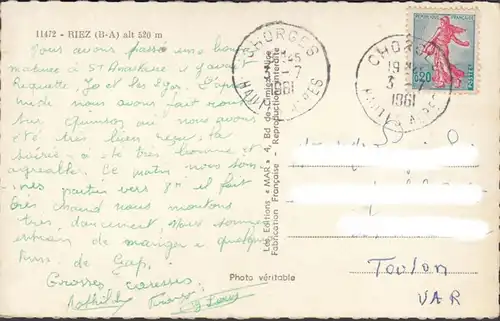 11472 - RIEZ (B-A) alt 520 m
Nous avons passé une bonne
matinée à St Anastasie, y avait
Jo et les Igor. L'après
midi nous avons fait route
sur nous avons
été très bien reçu. la
soirée a été très bonne et
agréable. Ce matin nous som
mes partis vers 8h il fait
très chaud nous montons
très doucement, nous sommes
entrain de manger a quelques
kms de Gap.
Grosses caresses.
Mathilde
Les Editions "MAR" - 4, Bd de Cimiez - Nice
Fabrication Française - Reproduction interdite
Photo véritable
CHORGES
1961
HAUTES ALPES
CHORGES
19
3 -7
1961
HAUTES ALPES
REPUBLIQUE FRANÇAISE
0,20
POSTES
Toulon
VAR